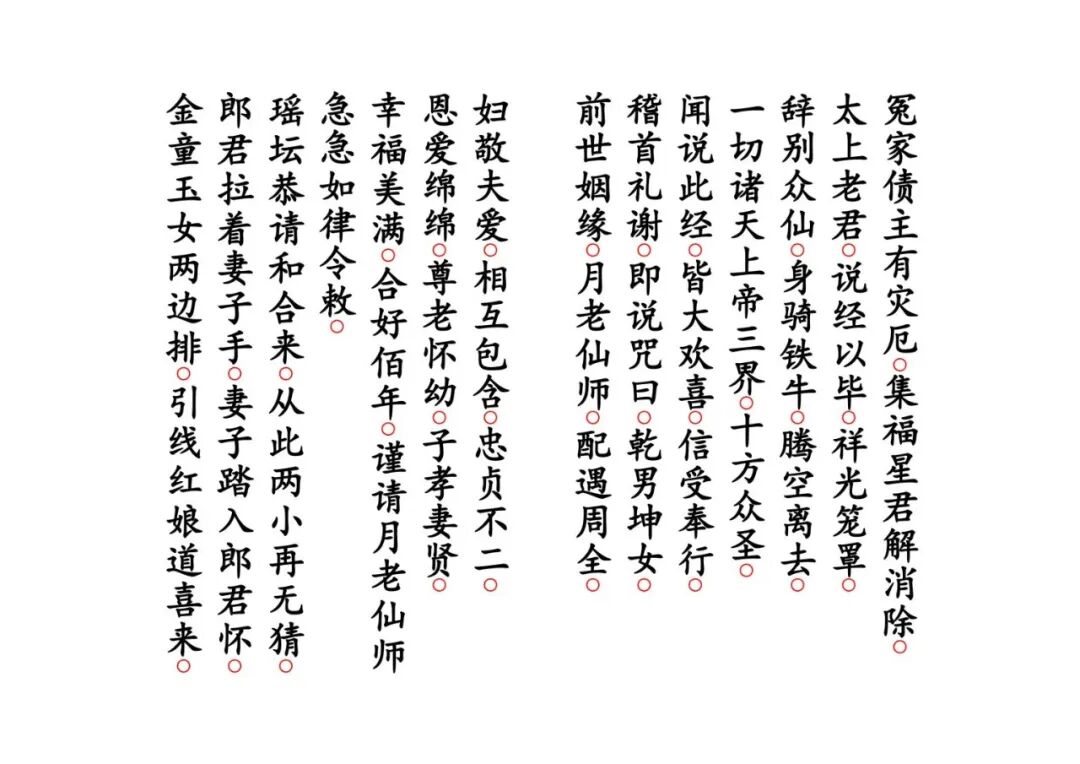 冤家债主有灾厄○集福星君解消除○
太上老君○说经以毕○祥光笼罩○
辞别众仙○身骑铁牛○腾空离去○
一切诸天上帝三界○十方众圣○
闻说此经○皆大欢喜○信受奉行○
稽首礼谢○即说咒曰○乾男坤女○
前世姻缘○月老仙师○配遇周全○
妇敬夫爱○相互包含○忠贞不二○
恩爱绵绵○尊老怀幼○子孝妻贤○
幸福美满○合好佰年○谨请月老仙师
急急如律令敕○
瑶坛恭请和合来○从此两小再无猜○
郎君拉着妻子手○妻子踏入郎君怀○
金童玉女两边排○引线红娘道喜来○